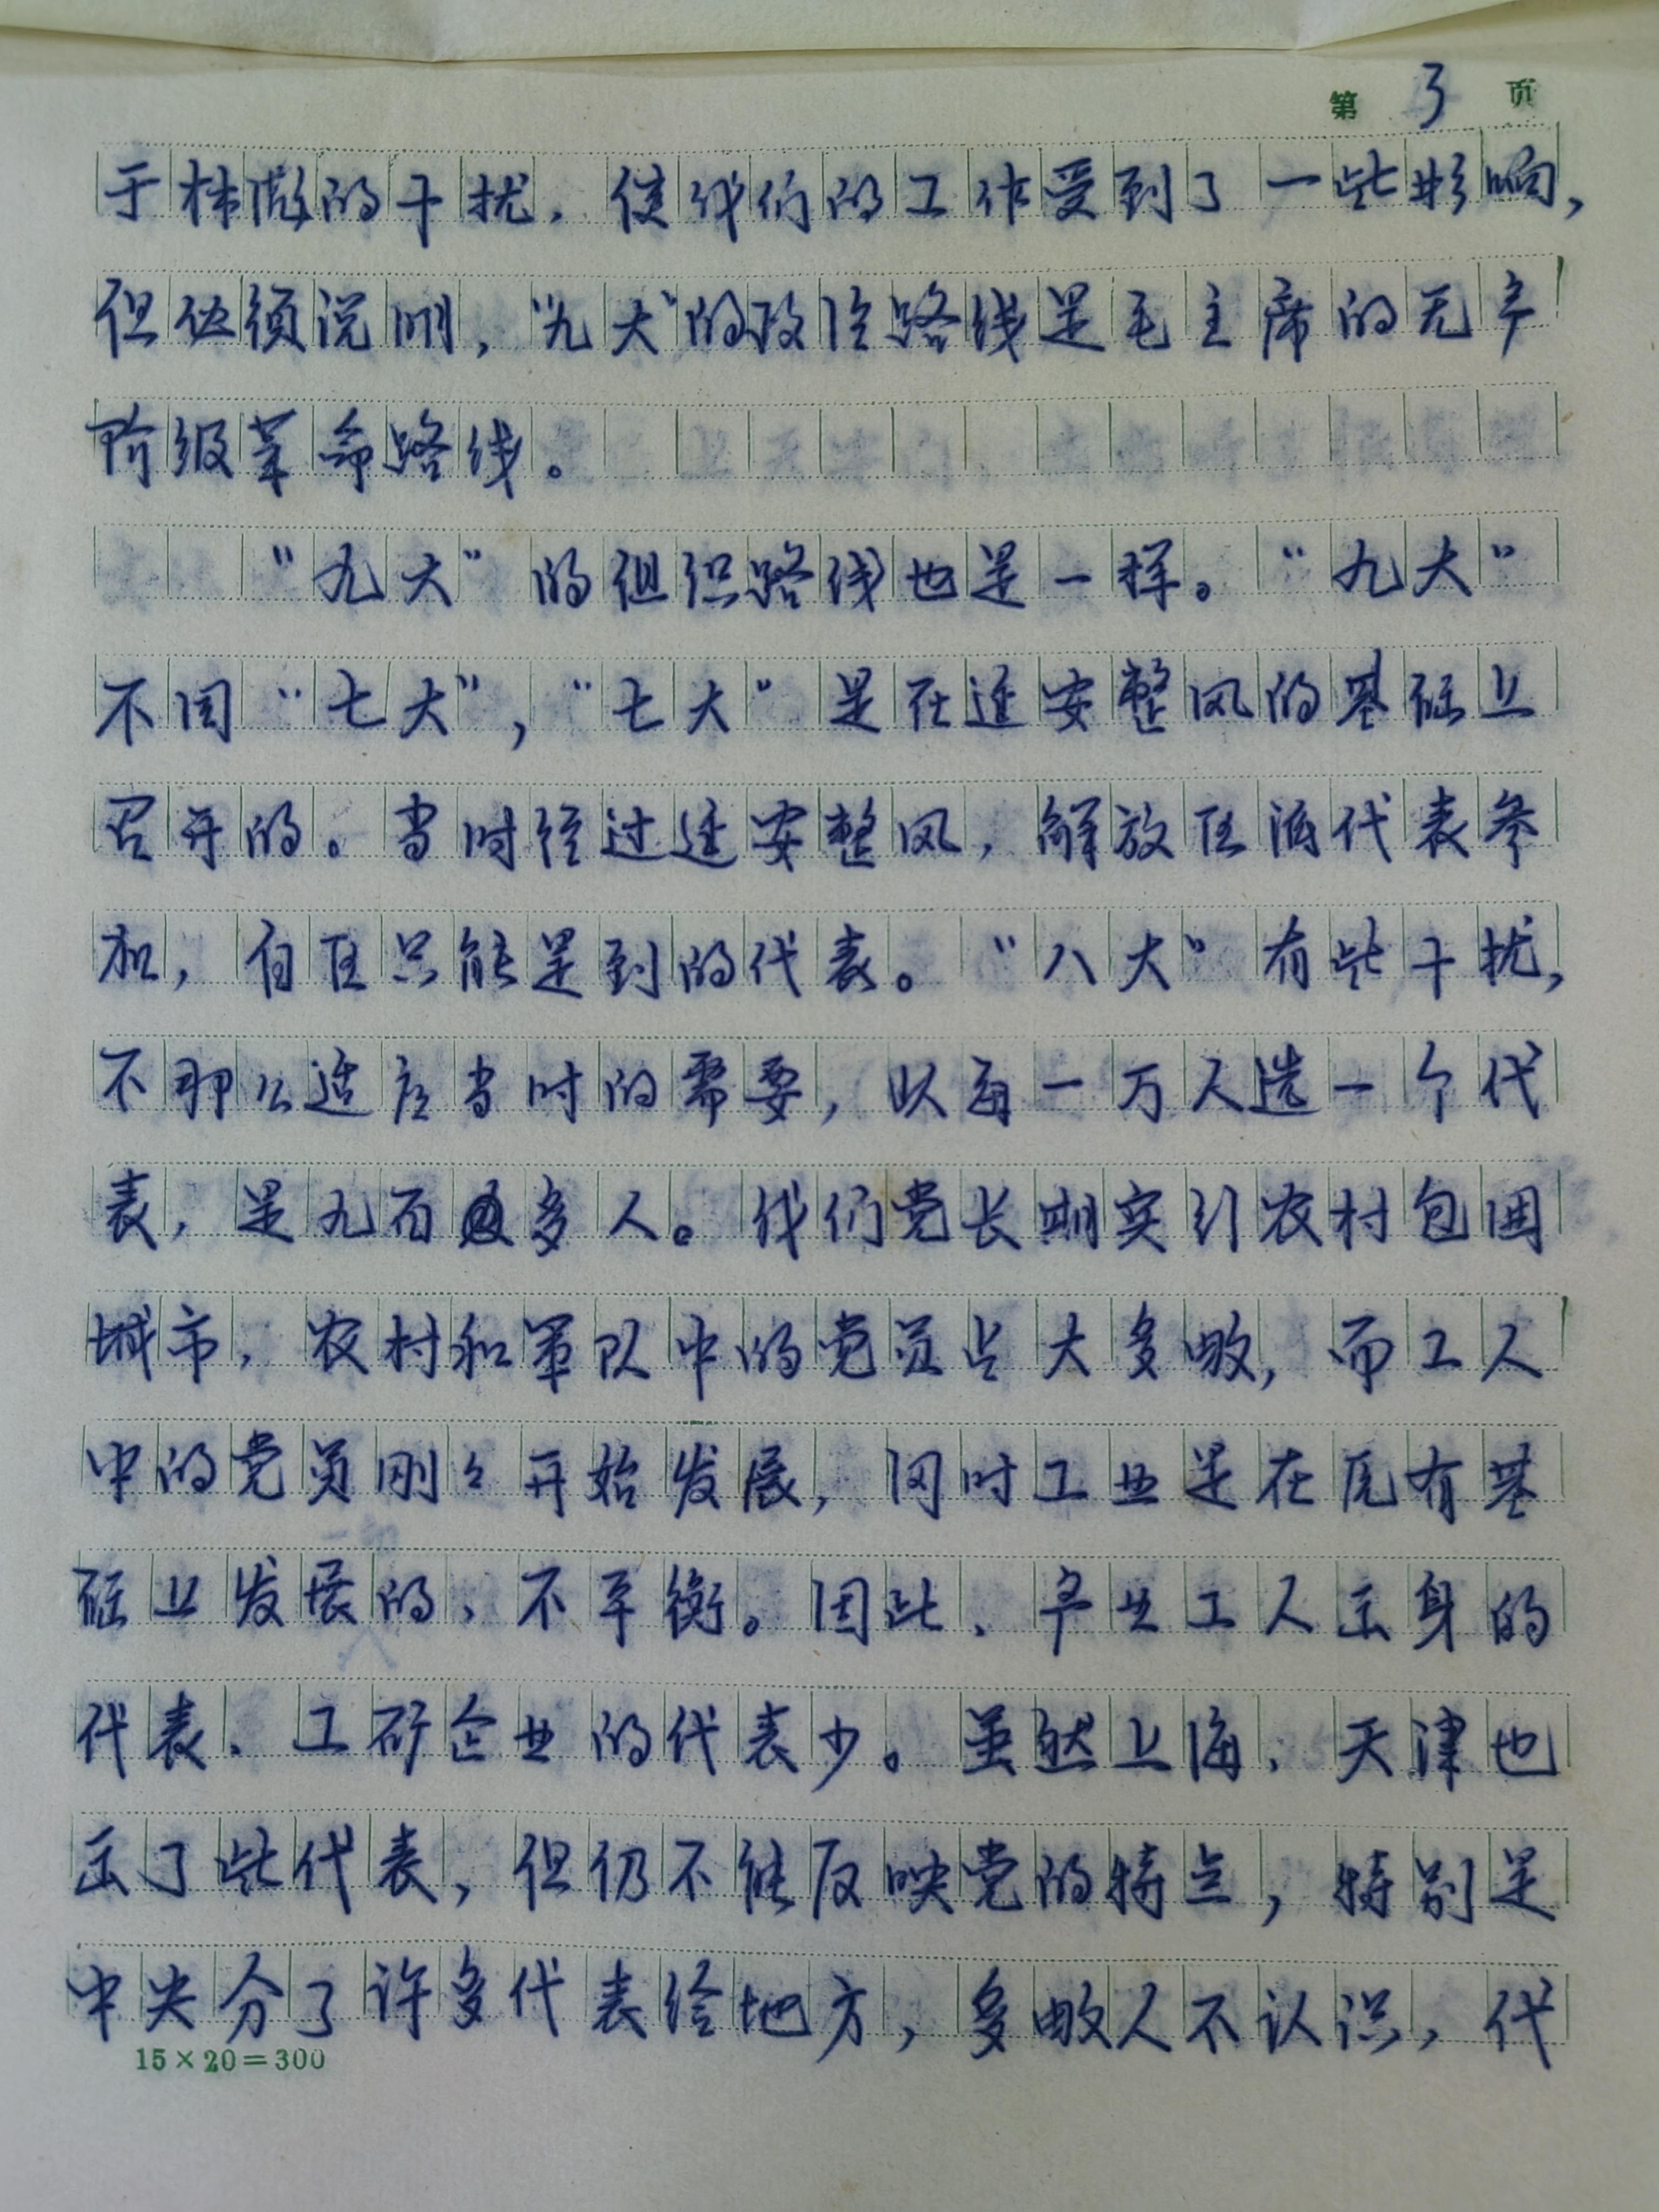 第 3 页
于林彪的干扰，使我们的工作受到了一些影响，
但必须说明，“九大”的政治路线是毛主席的无产
阶级革命路线。
“九大”的组织路线也是一样。“九大”
不同“七大”，“七大”是在延安整风的基础上
召开的。当时经过延安整风，解放区派代表参
加，白区只能是到的代表。“八大”有些干扰，
不那么适应当时的需要，以每一万人选一个代
表，是九百多人。我们党长期实行农村包围
城市，农村和军队中的党员占大多数，而工人
中的党员刚々开始发展，同时工业是在原有基
础上发展的，不平衡。因此，产业工人出身的
代表、工矿企业的代表少。虽然上海、天津也
出了些代表，但仍不能反映党的特点，特别是
中央分了许多代表给地方，多数人不认识，代
15×20=300